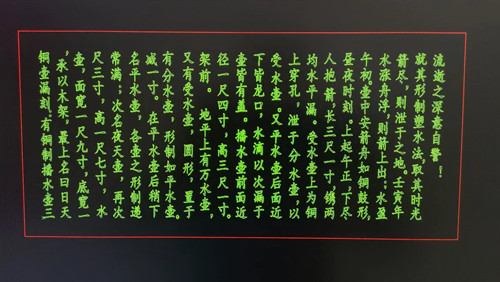 铜壶漏刻：有铜制播水壶三
，承以木架，最上名曰日天
壶，面宽一尺九寸，底宽一
尺三寸，高一尺七寸，水
常满；次名夜天壶，再次
名平水壶，各壶之形制递
减一寸。在平水壶后稍下
有分水壶，形制如平水壶。
又有受水壶，圆形，置于
架前。地平上有万水壶，
径一尺四寸，高三尺一寸。
壶皆有盖。播水壶前面近
下皆龙口，水滴以次漏于
受水壶。又平水壶后面近
上穿孔，泄于分水壶，以
均水平漏。受水壶上为铜
人抱箭，长三尺一寸，镌两
昼夜时刻。上起午正，下尽
午初。壶中安箭舟如铜鼓形，
水涨舟浮，则箭上出；水盈
箭尽，则泄于之地。壬寅年
就其形制塑水法，取其时光
流逝之深意自警！